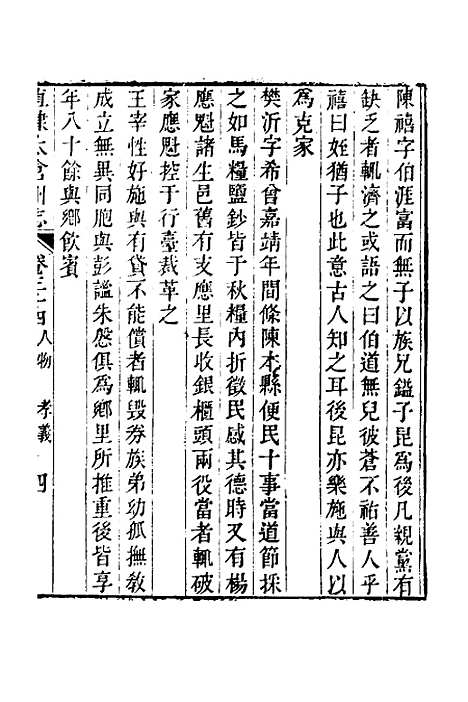 陳禧字伯涯富而無子以族兄鎰子昆爲後凡親黨有
缺乏者輒濟之或語之曰伯道無兒彼蒼不祐善人乎
禧曰姪猶子也此意古人知之耳後昆亦樂施與人以
爲克家
樊沂字希曾嘉靖年間條陳本縣便民十事當道節採
之如馬糧鹽鈔皆于秋糧內折徵民感其德時又有楊
應魁諸生邑舊有支應里長收銀櫃頭兩役當者輒破
家應魁控于行臺裁革之
王宰性好施與有貸不能償者輒毀券族弟幼孤撫教
成立無異同胞與彭謐朱慇俱爲鄉里所推重後皆享
年八十餘與鄉飲賓
直隸太倉州志 卷二十四人物 孝義 四